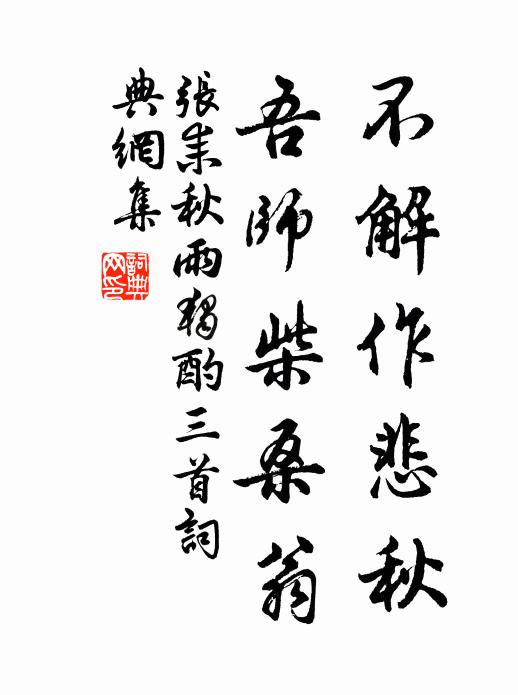 不解作悲秋
吾師柴桑翁
張耒秋雨獨酌三首詞
典網集
詞典
网印